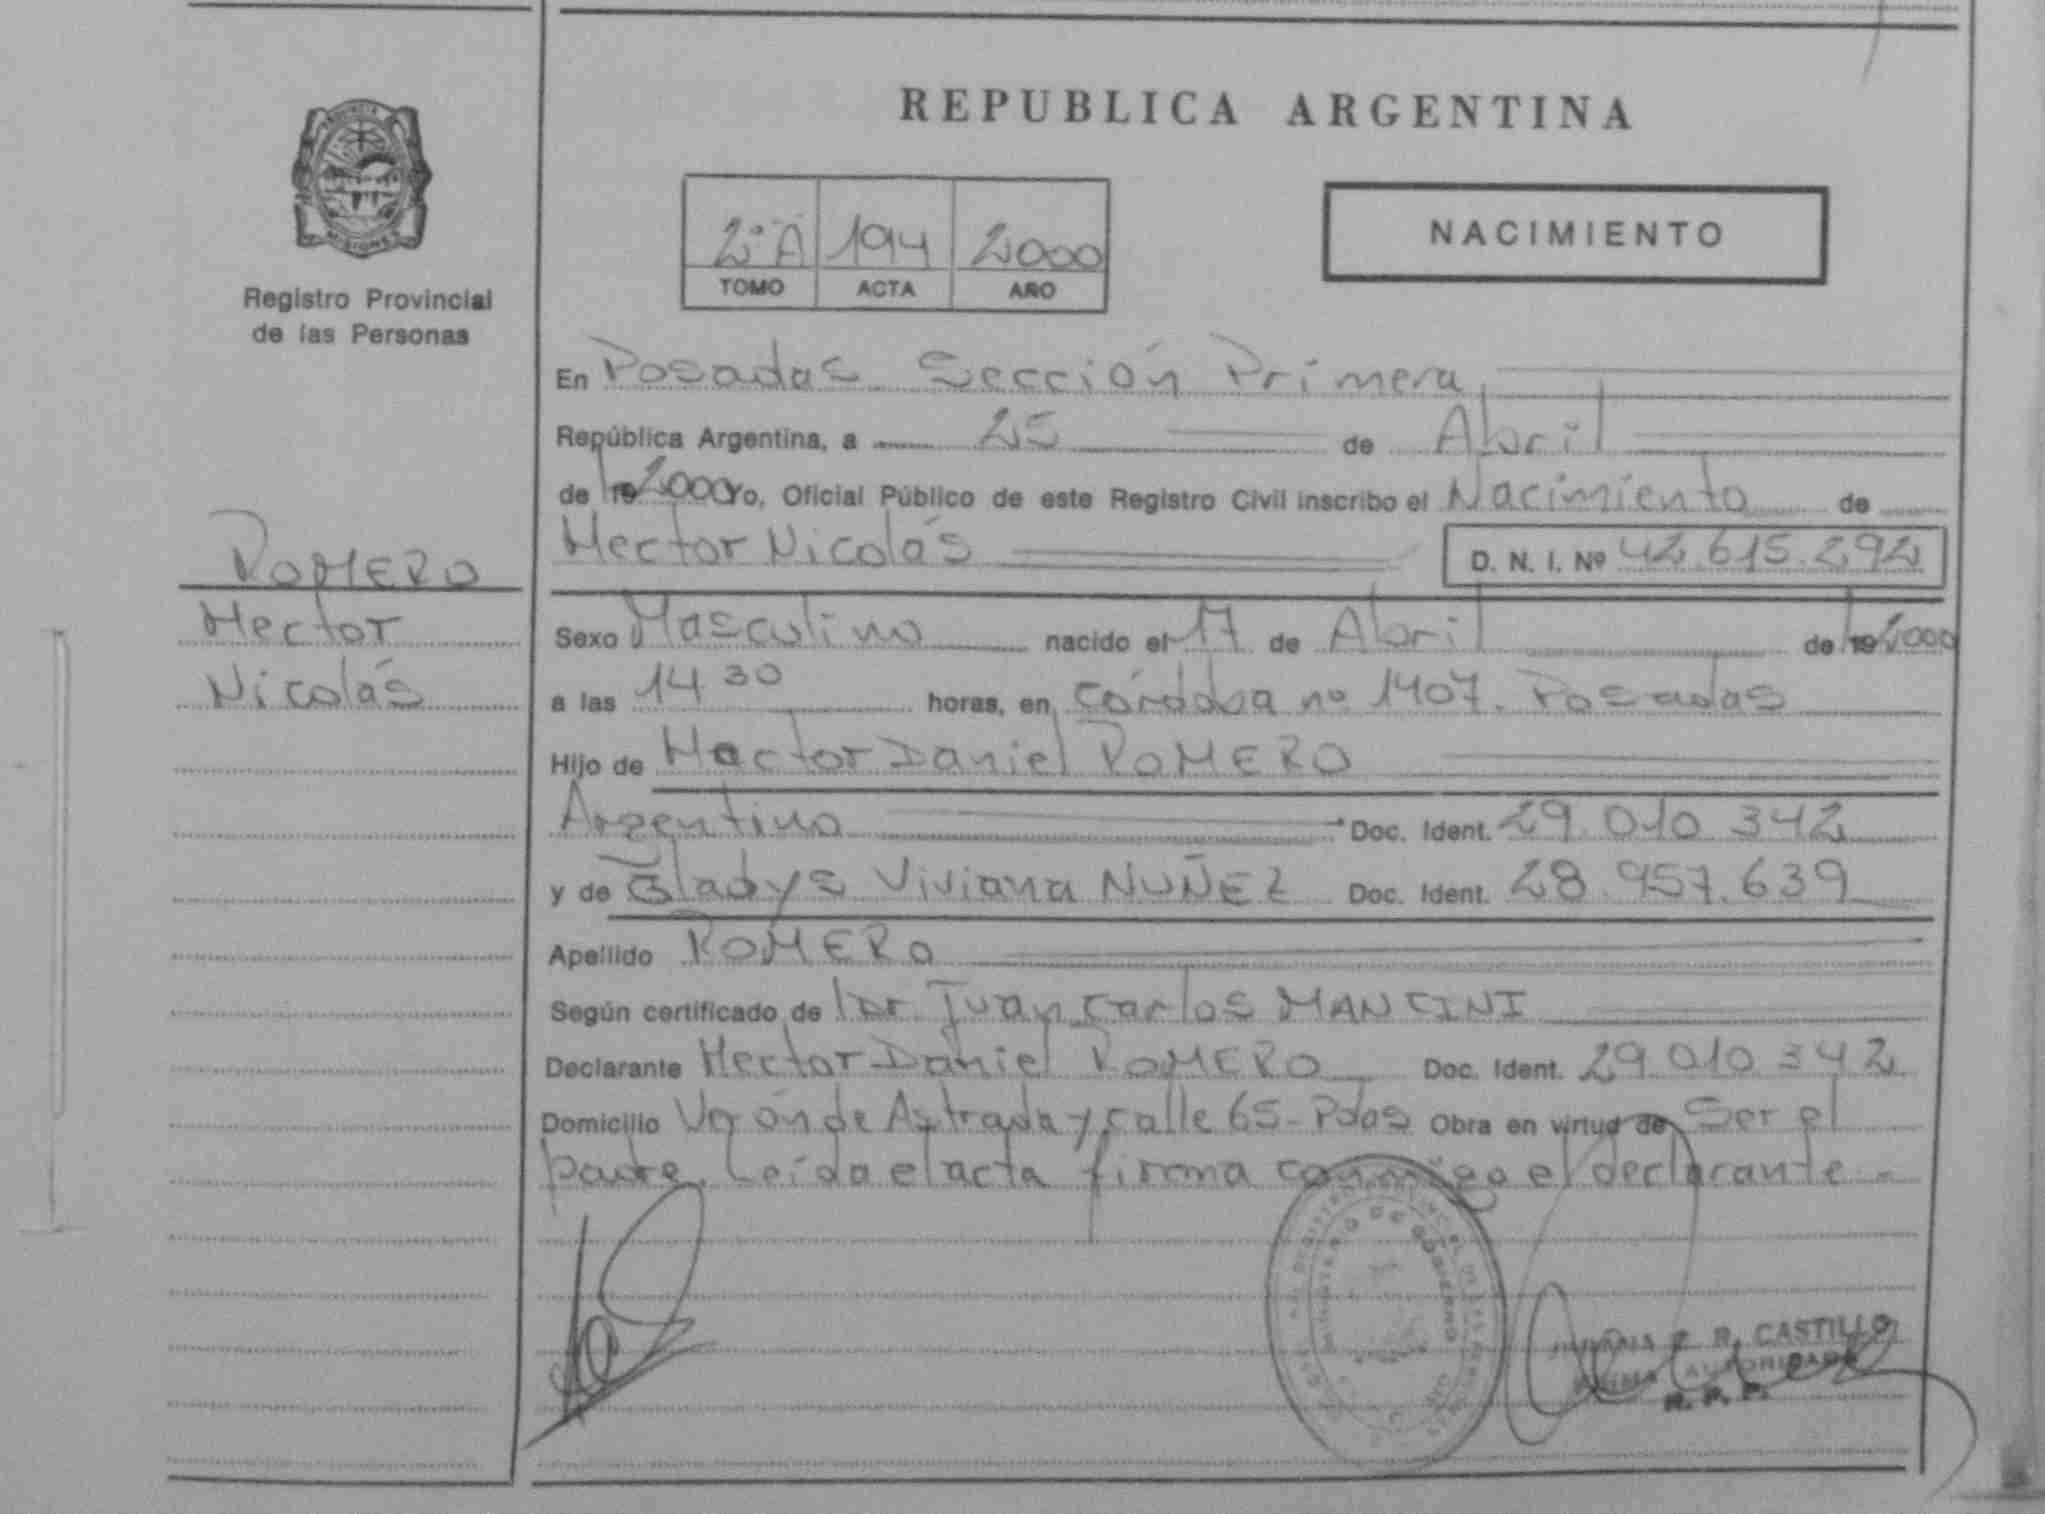 REPUBLICA ARGENTINA
PROVINCIA
MISIONES
Registro Provincial
de las Personas
2º A 194 2000
TOMO ACTA AÑO
NACIMIENTO
En Posadas Sección Primera
República Argentina, a 25 de Abril
de 19 2000 Yo, Oficial Público de este Registro Civil inscribo el Nacimiento de
Hector Nicolás D. N. I. Nº 42.615.292
ROMERO
Hector
Nicolás
Sexo Masculino nacido el 17 de Abril de 19 2000
a las 14 30 horas, en Córdoba nº 1407. Posadas
Hijo de Hector Daniel ROMERO
Argentino Doc. Ident. 29.010.342
y de Gladys Viviana NUÑEZ Doc. Ident. 28.957.639
Apellido ROMERO
Según certificado de Dr. Juan Carlos MANCINI
Declarante Hector Daniel ROMERO Doc. Ident. 29.010.342
Domicilio de Astrada y calle 65 - Pdas Obra en virtud de Ser el
padre. Leída el acta firma conmigo el declarante.-
MINISTERIO DE GOBIERNO
R. CASTILLO
FIRMA AUTORIZADA
R. P. P.